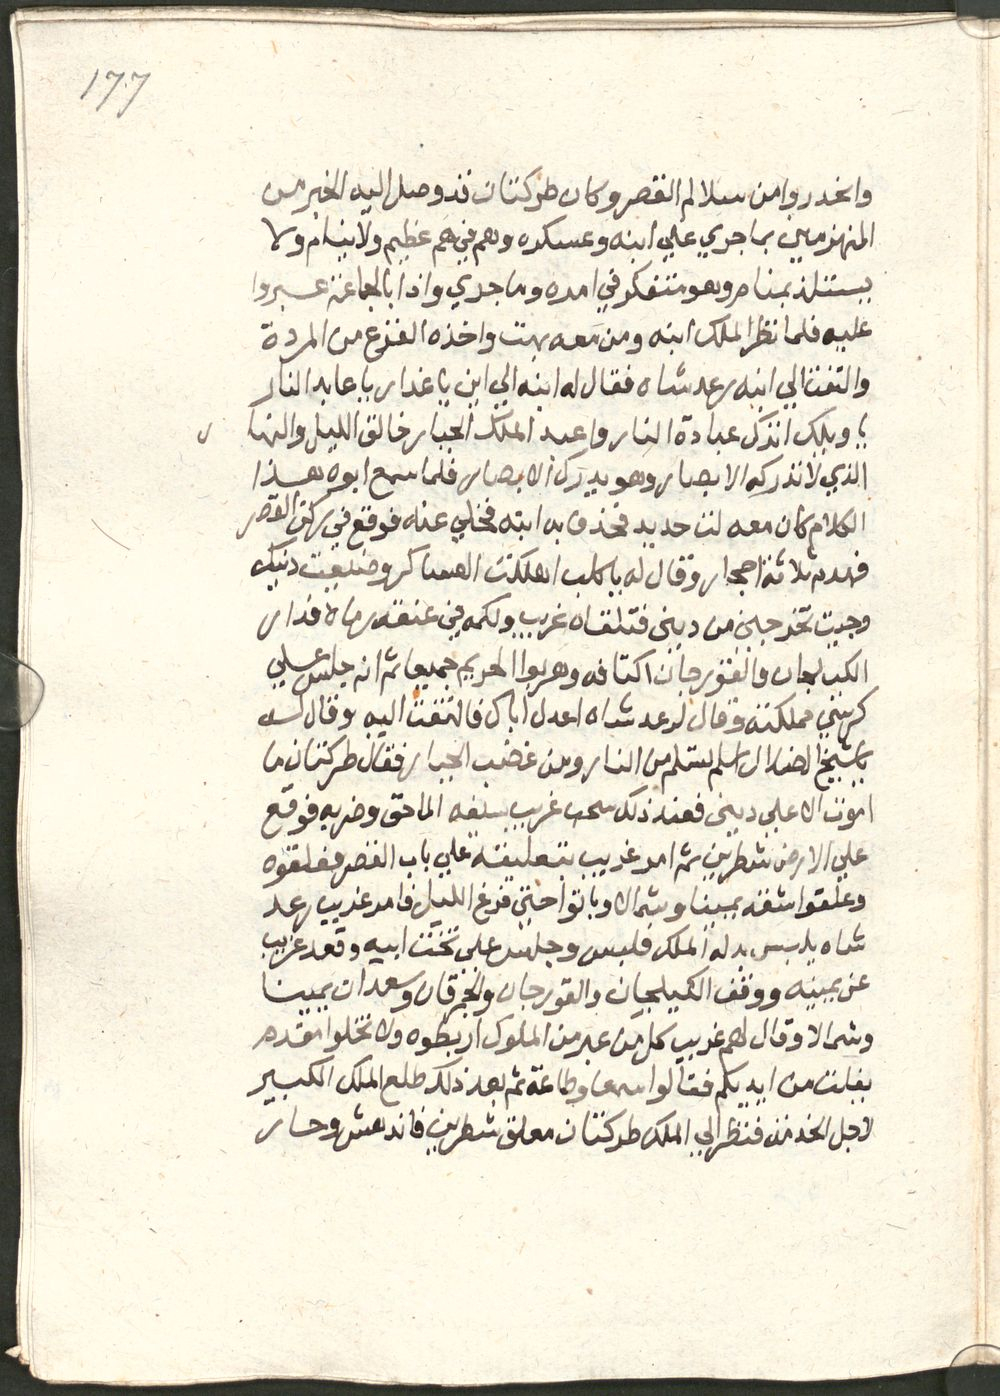 177
وانحدروا من سلالم القصر وكان طركنان قد وصل اليه الخبر من
المنهزمين بما جري علي ابنه وعسكره وهم في هم عظيم ولا ينام ولا
يستلذ بمنام وهو متفكر في امره وما جري واذا بالجماعة عبروا
عليه فلما نظر الملك ابنه ومن معه بهت واخذه الفزع من المردة
والتفت الي ابنه رعد شاه فقال له ابنه الي اين يا غدار يا عابد النار
يا ويلك اترك عبادة النار واعبد الملك الجبار خالق الليل والنهار
الذي لا تدركه الابصار وهو يدرك الابصار فلما سمع ابوه هذا
الكلام كان معه لت حديد فحذف به ابنه فخلي عنه فوقع في ركن القصر
فهدم ثلاثة احجار وقال له يا كلب اهلكت العساكر وضيعت دينك
وجيت تخرجني من ديني فتلقاه غريب ولكمه في عنقه رماه فدار
الكيلجان والقورجان اكتافه وهربوا الحريم جميعا ثم انه جلس علي
كرسي مملكته وقال لرعد شاه اعدل اباك فالتفت اليه وقال له
يا شيخ الضلال اسلم تسلم من النار ومن غضب الجبار فقال طركنان ما
اموت الا علي ديني فعند ذلك سحب غريب سيفه الماحق وضربه فوقع
علي الارض شطرين ثم امر غريب بتعليقه علي باب القصر فعلقوه
وعلقوا شقه يمينا وشمالا وباتوا حتي فرغ الليل فامر غريب رعد
شاه يلبس بدلة الملك فلبس وجلس علي تخت ابيه وقعد غريب
عن يمينه ووقف الكيلجان والقورجان والجمرقان وسعدان يمينا
وشمالا وقال لهم غريب كل من عبر من الملوك اربطوه ولا تخلوا مقدم
يفلت من ايديكم فقالوا سمعا وطاعة ثم بعد ذلك طلع الملك الكبير
لاجل الخدمة فنظر الي الملك طركنان معلق شطرين فاندهش وحار